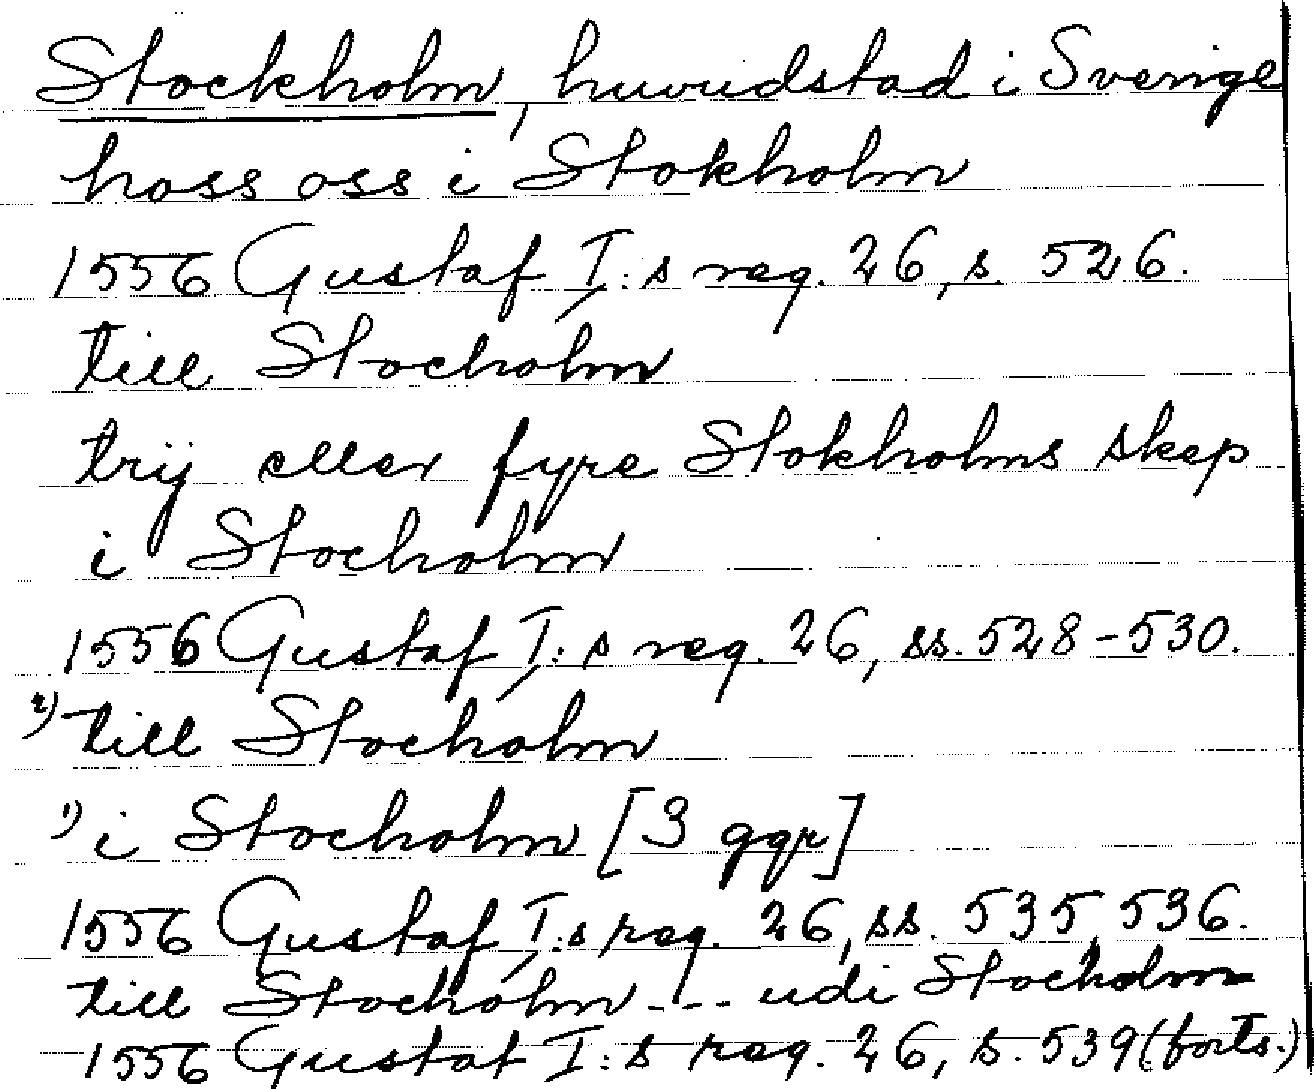 Stockholm, huvudstad i Sverige
hoss oss i Stokholm
1556 Gustaf I:s reg. 26, s. 526.
till Stocholm
trij eller fyre Stokholms skep
i Stocholm
1556 Gustaf I:s reg. 26, ss. 528-530.
2) till Stocholm
1) i Stocholm [3 ggr]
1556 Gustaf I:s reg. 26, ss. 535, 536.
till Stocholm --- udi Stocholm
1556 Gustaf I:s reg. 26, s. 539 (forts.)